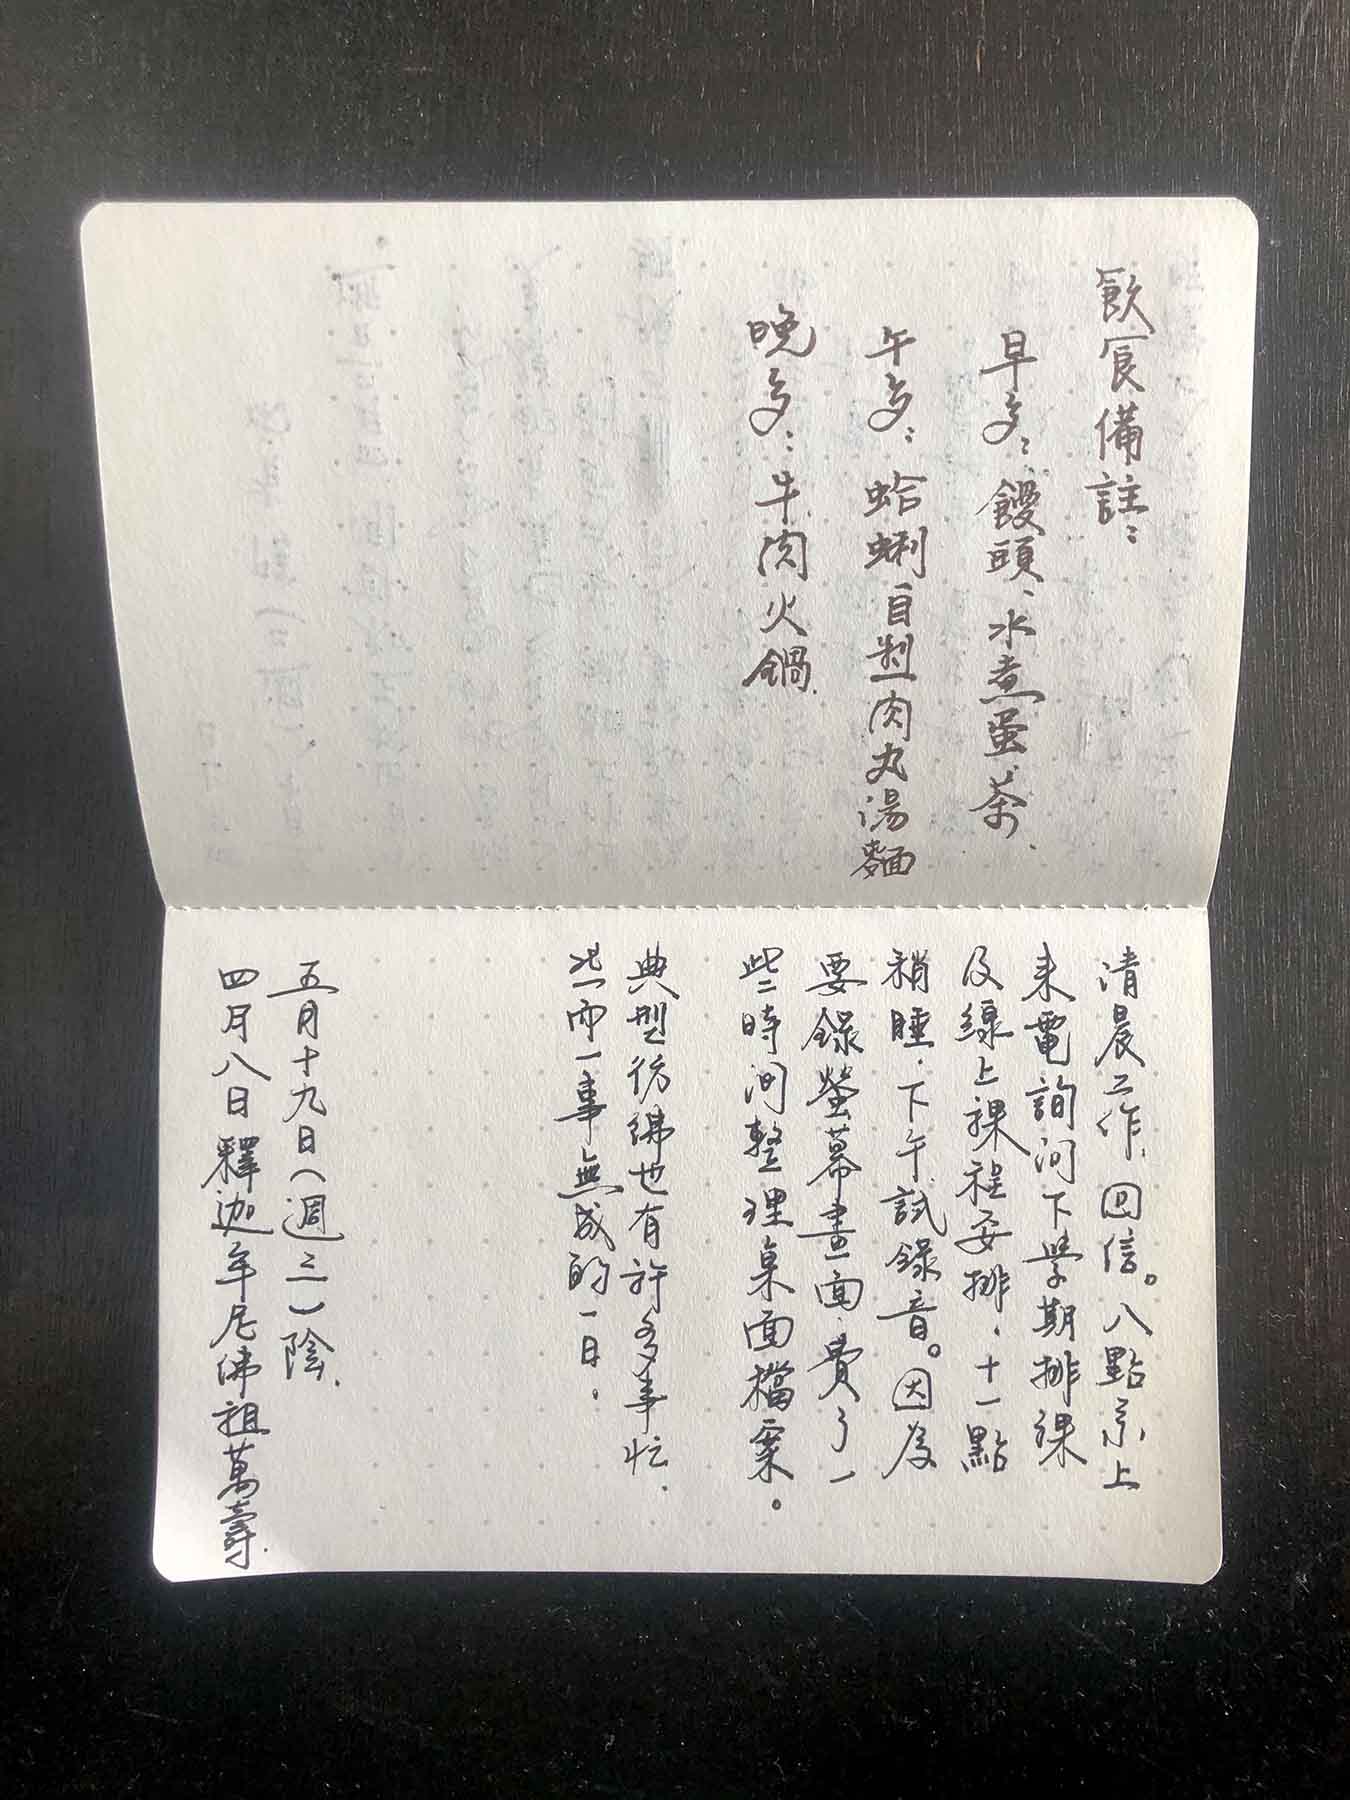 飲食備註：
早多：饅頭、水煮蛋、茶、
午多：蛤蜊自製肉丸湯麵
晚多：牛肉火鍋、
清晨工作、回信。八點系上
來電詢问下學期排課
及線上課程安排、十一點
稍睡、下午試錄音。因為
要錄螢幕畫面、費了一
些時间整理桌面檔案。
典型彷彿也有許多事忙、
然而一事無成的一日。
五月十九日（週三）陰、
四月八日釋迦牟尼佛祖萬壽、